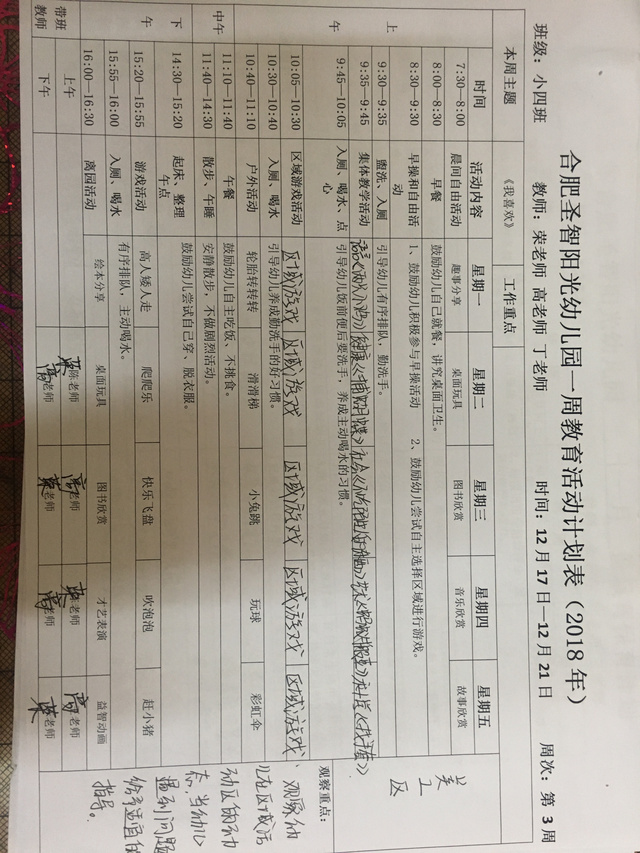 合肥圣智阳光幼儿园一周教育活动计划表（2018 年）
班级：小四班 教师：荣老师 高老师 丁老师 时间：12 月 17 日—12 月 21 日 周次：第 3 周
本周主题 《我喜欢》 工作重点
时间 活动内容 星期一 星期二 星期三 星期四 星期五
上午
7:30—8:00 晨间自由活动 趣事分享 桌面玩具 图书欣赏 音乐欣赏 故事欣赏
8:00—8:30 早餐 鼓励幼儿自己就餐，讲究桌面卫生。
8:30—9:30 早操和自由活动 1、鼓励幼儿积极参与早操活动 2、鼓励幼儿尝试自主选择区域进行游戏。
9:30—9:35 盥洗、入厕 引导幼儿有序排队，勤洗手。
9:35—9:45 集体教学活动
9:45—10:05 入厕、喝水、点心 引导幼儿饭前便后要洗手，养成主动喝水的习惯。
10:05—10:30 区域游戏活动 区域游戏 区域游戏 区域游戏 区域游戏 区域游戏
10:30—10:40 入厕、喝水 引导幼儿养成勤洗手的好习惯。
10:40—11:10 户外活动 轮胎转转转 滑滑梯 小兔跳 玩球 彩虹伞
中午
11:10—11:40 午餐 鼓励幼儿自主吃饭、不挑食。
11:40—14:30 散步、午睡 安静散步，不做剧烈活动。
下午
14:30—15:20 起床、整理 午点 鼓励幼儿尝试自己穿、脱衣服。
15:20—15:55 游戏活动 高人矮人走 爬爬乐 快乐飞盘 吹泡泡 赶小猪
15:55—16:00 入厕、喝水 有序排队，主动喝水。
16:00—16:30 离园活动 绘本分享 桌面玩具 图书欣赏 才艺表演 益智动画
带班教师
上午 陈老师 老师 老师 老师
下午 老师 老师 老师 老师
美工区
观察重点：
观察幼
儿在区域活
动区的动
态，当幼儿
遇到问题
给予适宜的
指导。